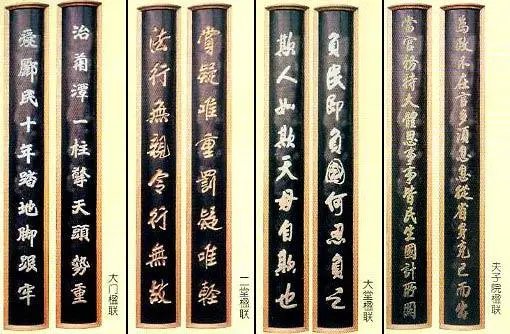 治菊潭一柱擎天頭勢重
愛酈民十年踏地腳跟牢
大门楹联
賞疑唯重罰疑唯輕
法行無親令行無故
二堂楹联
負民即負國何忍負之
欺人如欺天毋自欺也
大堂楹联
為政不在言多須息息從省身克己而出
當官務持大體思事事皆民生國計所關
夫子院楹联